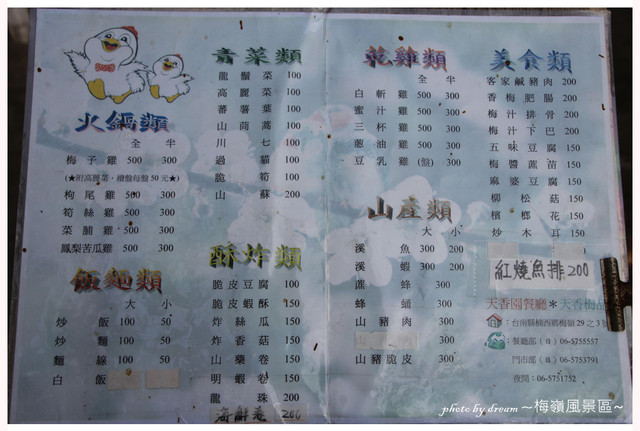 火鍋類
梅子雞 500 300
(★附高麗菜，續盤每盤50元★)
枸尾雞 500 300
筍絲雞 500 300
菜脯雞 500 300
鳳梨苦瓜雞 500 300
飯麵類
大 小
炒飯 100 50
炒麵 100 50
麵線 100 50
白飯
青菜類
龍鬚菜 100
高麗菜 100
蕃薯葉 100
山茼蒿 100
川七 100
過貓 100
脆筍 100
山蘇 200
酥炸類
脆皮豆腐 100
脆皮蝦酥 150
炸絲瓜 150
炸香菇 150
山藥卷 150
明蝦卷 150
龍珠 200
海鮮卷 200
花雞類
全 半
白斬雞 500 300
蜜汁雞 500 300
三杯雞 500 300
蔥油雞 500 300
豆乳雞(盤) 300
山產類
大 小
溪魚 300 200
溪蝦 300 200
蜂蛹 200
山豬肉 300 200
山豬脆皮 300 200
美食類
客家鹹豬肉 200
香梅肥腸 200
梅汁排骨 200
梅汁下巴 200
五味豆腐 150
梅醬蔗苗 150
麻婆豆腐 150
柳松菇 150
檳榔花 150
炒木耳
紅燒魚排 200
天香園餐廳＊天香梅品
：台南縣楠西鄉梅嶺29之3
：餐廳部（日）06-5755557
門市部（日）06-5753791
夜間：06-5751752
photo by dream ～梅嶺風景區～